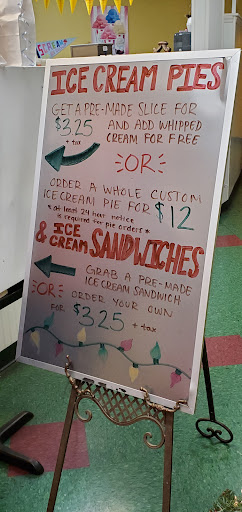 ICE CREAM
ICE CREAM PIES
GET A PRE-MADE SLICE FOR
$3.25 AND ADD WHIPPED
+ tax CREAM FOR FREE
OR
ORDER A WHOLE CUSTOM
ICE CREAM PIE FOR $12
*at least 24 hour notice
is required for pie orders*
& ICE CREAM SANDWICHES
GRAB A PRE-MADE
ICE CREAM SANDWICH
OR ORDER YOUR OWN
FOR $3.25 + tax